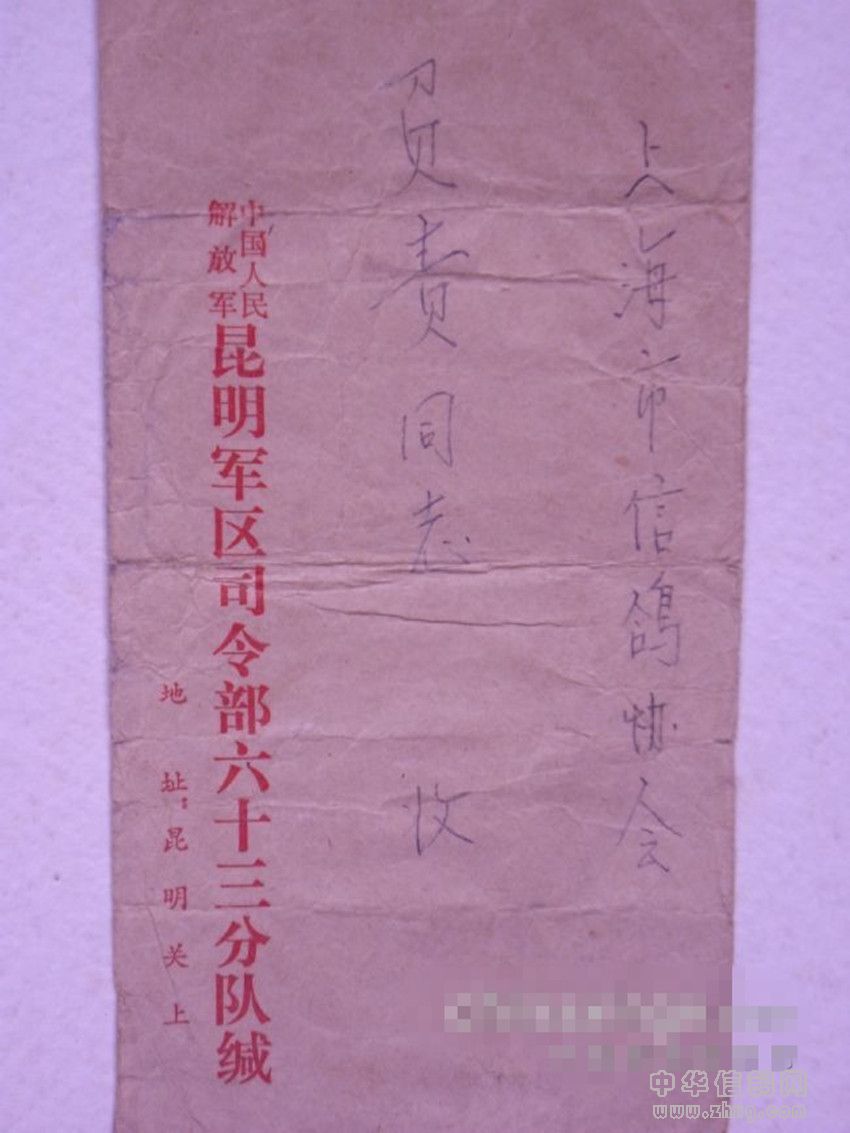 上海市信鸽协会
负责同志 收
中国人民
解放军
昆明军区司令部六十三分队缄
地 址：昆明关上
中华信鸽网
www.zhxg.com